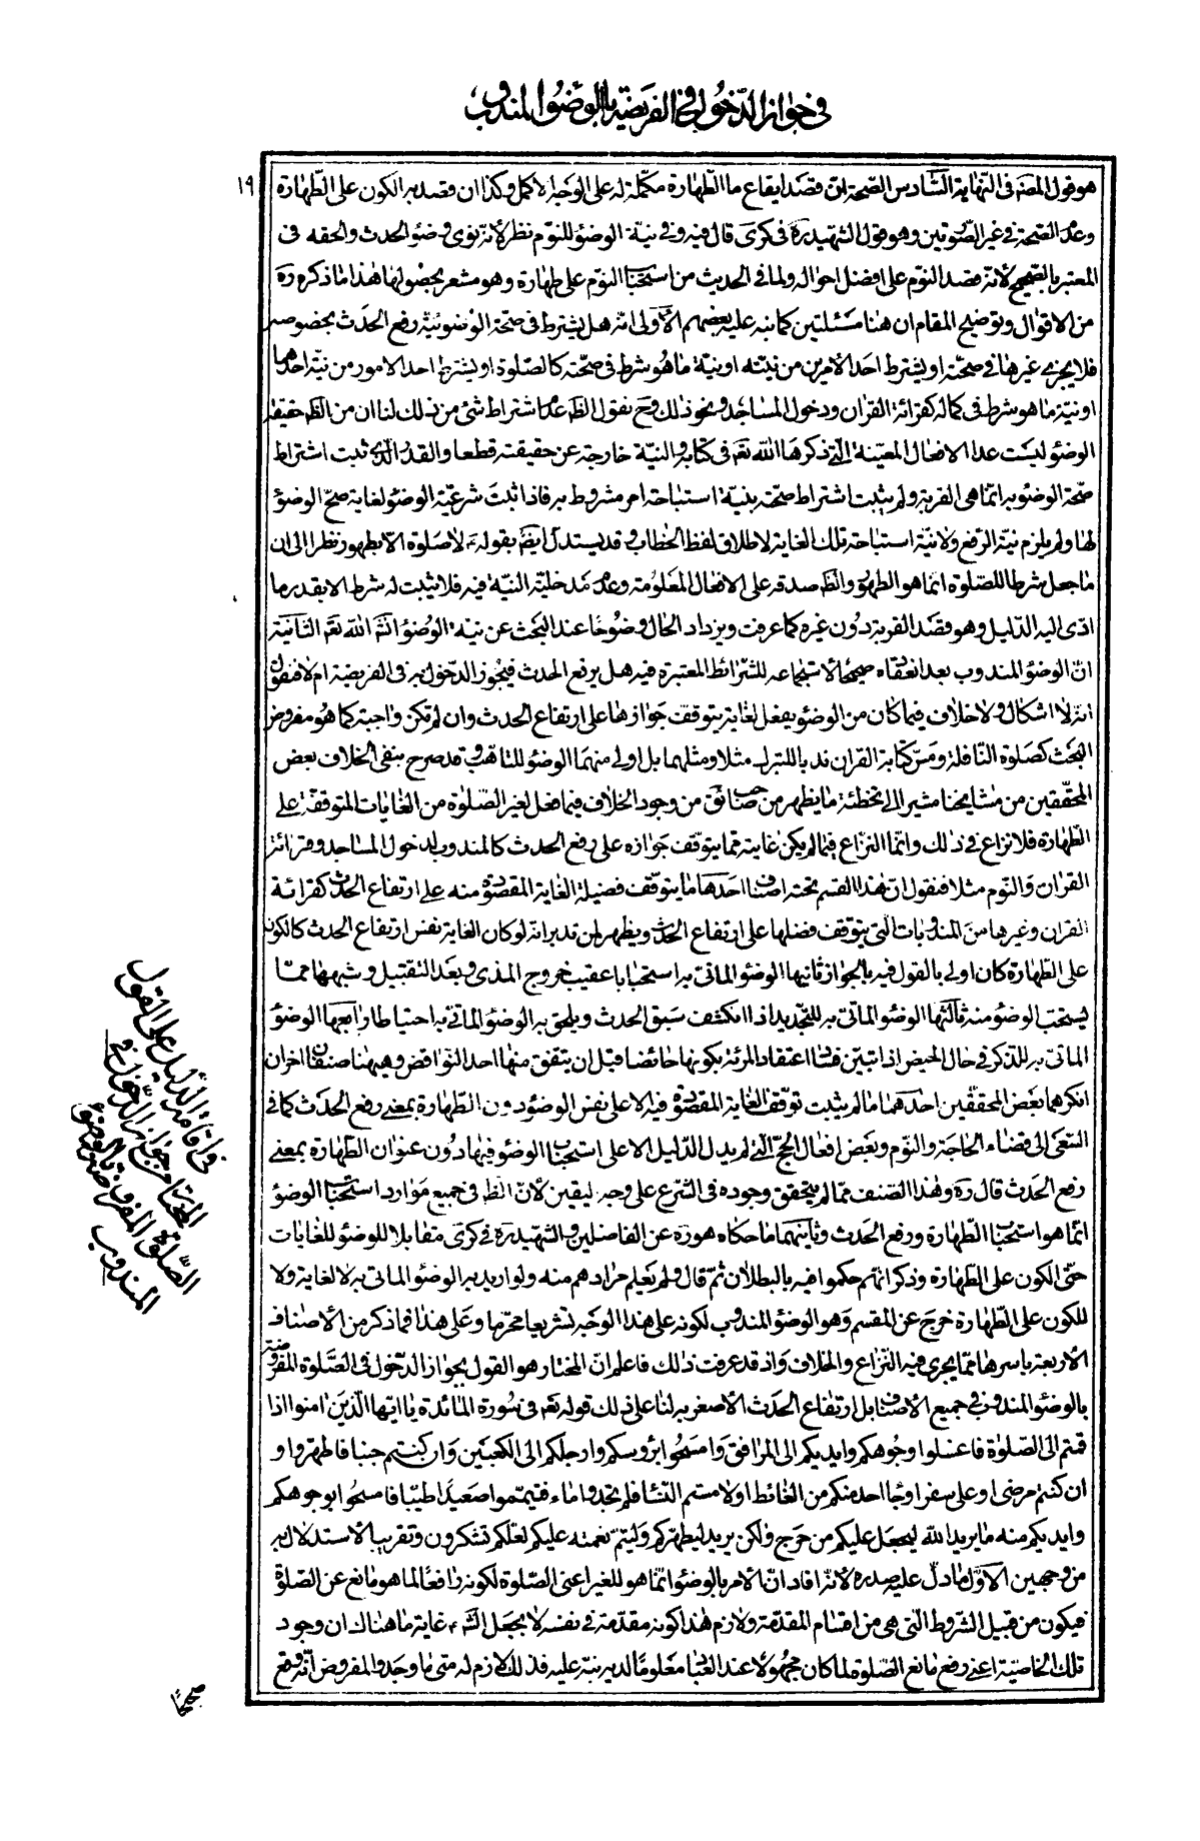 في جواز الدّخول في الفريضة بالوضوء المندوب
١٩
هو قول المصنف في النّهاية السّادس الصّحة ان قصد ايقاع ما الطّهارة مكمّلة له على الوجه الاكمل وكذا ان قصد به الكون على الطّهارة
وعدم الصّحة في غير الصّورتين وهو قول الشّهيد ره في كرى قال فيه وفي نيّة الوضوء للنّوم نظر لأنّه نوى وضوء الحدث والحقه فى
المعتبر بالصّحيح لأنّه قصد النّوم على افضل احواله ولما في الحديث من استحباب النّوم على طهارة وهو مشعر بحصولها هذا ما ذكره ره
من الاقوال وتوضيح المقام ان هنا مسئلتين كما نبه عليه بعضهم الأولى انّه هل يشترط في صحّة الوضوء نيّة رفع الحدث بخصوصه
فلا يجزي غيرها في صحّته او يشترط احد الأمرين من نيّته او نيّة ما هو شرط في صحّته كالصّلوة او يشترط احد الامور من نيّة احدهما
او نيّة ما هو شرط في كماله كقرائة القران ودخول المساجد ونحو ذلك وح نقول الظ عدم اشتراط شئ من ذلك لنا ان من الظ حقيقة
الوضوء ليست عدا الافعال المعيّنة الّتي ذكرها اللّه تع في كتابه والنيّة خارجة عن حقيقته قطعا والقدر الّذي ثبت اشتراط
صّحة الوضوء به انّما هي القربة ولم يثبت اشتراط صحّته بنيّة استباحة امر مشروط به فاذا ثبت شرعيّة الوضوء لغاية صحّ الوضوء
لها ولم يلزم نيّة الرّفع ولا نيّة استباحة تلك الغاية لاطلاق لفظ الخطاب وقد يستدل ايضا بقوله ع لا صلوة الا بطهور نظرا الى ان
ما جعل شرطا للصّلوة انّما هو الطهور والظ صدقه على الافعال المعلومة وعدم مدخليّة النيّة فيه فلا يثبت له شرط الا بقدر ما
ادّى اليه الدّليل وهو قصد القربة دون غيره كما عرفت ويزداد الحال وضوحا عند البحث عن نيّة الوضوء انش اللّه تع الثّانية
انّ الوضوء المندوب بعد انعقاده صحيحا لاستجماعه للشّرائط المعتبرة فيه هل يرفع الحدث فيجوز الدّخول به في الفريضة ام لا فنقول
انّه لا اشكال ولا خلاف فيما كان من الوضوء يفعل لغاية يتوقّف جوازها على ارتفاع الحدث وان لم تكن واجبة كما هو مفروض
البحث كصلوة النّافلة ومسّ كتابة القران ندبا للتبرك مثلا ومثلهما بل اولى منهما الوضوء للتأهّب وقد صرح بنفي الخلاف بعض
المحقّقين من مشايخنا مشيرا الى تخطئة ما يظهر من صاحب ئق من وجود الخلاف فيما فعل لغير الصّلوة من الغايات المتوقفة على
الطّهارة فلا نزاع في ذلك وانّما النّزاع فيما لم يكن غايته ممّا يتوقّف جوازه على رفع الحدث كالمندوب لدخول المساجد وقرائة
القران والنّوم مثلا فنقول انّ هذا القسم تحته اصناف احدها ما يتوقّف فضيلة الغاية المقصودة منه على ارتفاع الحدث كقرائة
القران وغيرها من المندوبات الّتي يتوقّف فضلها على ارتفاع الحدث ويظهر لمن تدبر انّه لو كان الغاية نفس ارتفاع الحدث كالكون
على الطّهارة كان اولى بالقول فيه بالجواز ثانيها الوضوء المأتيّ به استحبابا عقيب خروج المذى وبعد التقبيل وشبهها ممّا
يستحب الوضوء منه ثالثها الوضوء المأتىّ به للتّجديد اذا انكشف سبق الحدث ويلحق به الوضوء المأتي به احتياطا رابعها الوضوء
المأتىّ به للذكر في حال الحيض اذا تبيّن فساد اعتقاد المرئة بكونها حائضا قبل ان يتفق منها احد النّواقض وهيهنا صنفان اخران
انكرهما بعض المحقّقين احدهما ما لم يثبت توقّف الغاية المقصودة فيه الا على نفس الوضوء دون الطّهارة بمعنى رفع الحدث كما في
السّعى الى قضاء الحاجة والنّوم وبعض افعال الحجّ الّتي لم يدل الدّليل الا على استحباب الوضوء فيها دون عنوان الطّهارة بمعنى
رفع الحدث قال ره وهذا الصّنف ممّا لم يتحقق وجوده في الشّرع على وجه ليقين لأنّ الظ في جميع موارد استحباب الوضوء
انّما هو استحباب الطّهارة ورفع الحدث وثانيهما ما حكاه هو ره عن الفاضلين والشّهيد ره في كرى مقابلا للوضوء للغايات
حتّى الكون على الطّهارة وذكر انّهم حكموا فيه بالبطلان ثمّ قال ولم يعلم مرادهم منه ولو اريد به الوضوء المأتي به لا لغاية ولا
للكون على الطّهارة خرج عن المقسم وهو الوضوء المندوب لكونه على هذا الوجه تشريعا محرّما وعلى هذا فما ذكر من الأصناف
الأربعة باسرها ممّا يجرى فيه النّزاع والخلاف واذ قد عرفت ذلك فاعلم انّ المختار هو القول بجواز الدّخول في الصّلوة المفروضة
بالوضوء المندوب في جميع الأصناف بل ارتفاع الحدث الأصغر به لنا على ذلك قوله تع في سورة المائدة يا ايّها الّذين امنوا اذا
قمتم الى الصّلوة فاغسلوا وجوهكم وايديكم الى المرافق وامسحوا برؤسكم وارجلكم الى الكعبين وان كنتم جنبا فاطهروا و
ان كنتم مرضى او على سفر او جاء احد منكم من الغائط او لامستم النّساء فلم تجدوا ماء فتيمّموا صعيدا طيّبا فامسحوا بوجوهكم
وايديكم منه ما يريد اللّه ليجعل عليكم من حرج ولكن يريد ليطهّركم وليتمّ نعمته عليكم لعلّكم تشكرون وتقريب الأستدلال به
من وجهين الأوّل ما دلّ عليه صدره لأنّه افاد انّ الأمر بالوضوء انّما هو للغير اعنى الصّلوة لكونه رافعا لما هو مانع عن الصّلوة
فيكون من قبيل الشّروط الّتي هي من اقسام المقدّمة ولازم هذا كونه مقدّمة في نفسه لا بجعل الش ع غاية ما هناك ان وجود
تلك الخاصيّة اعنى رفع مانع الصّلوة لما كان مجهولا عند العباد معلوما لديه نبّه عليه فذلك لازم له متى ما وجد والمفروض انّه وقع
صحيحا
في اقامة الدّليل على القول
المختار من جواز الدّخول في
الصّلوة المفروضة بالوضوء
المندوب